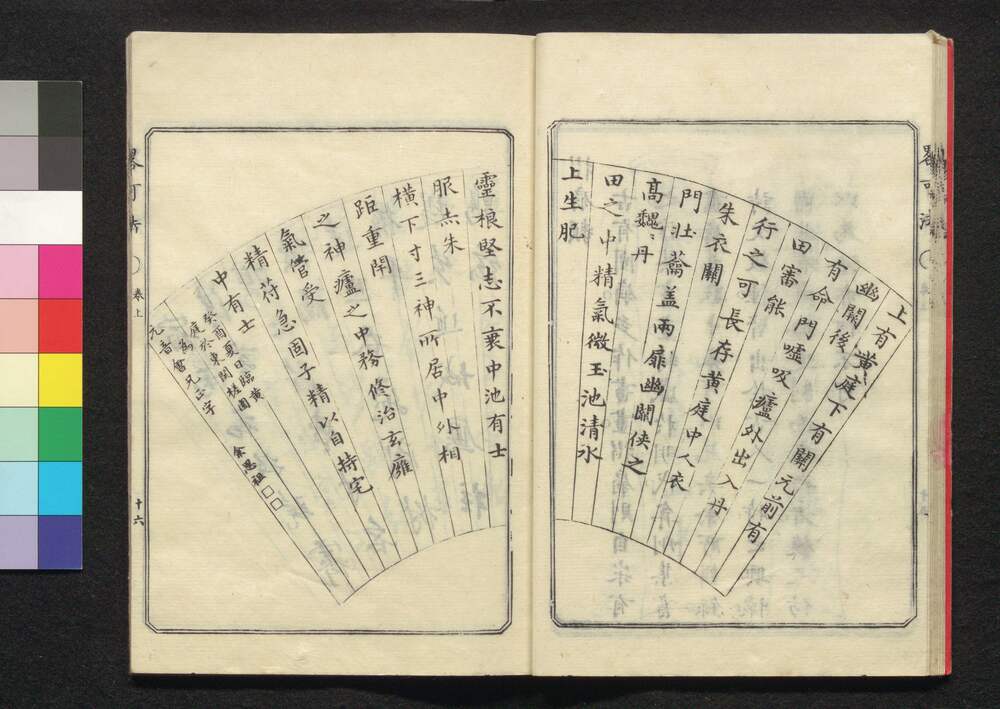 上有黃庭下有關元前有
幽關後有命門噓吸廬外出入丹
田審能行之可長存黃庭中人衣
朱衣關門壯蘥蓋兩扉幽關俠之
高魏〻丹田之中精氣微玉池清水
上生肥
靈根堅志不衰中池有士
服赤朱
橫下寸三神所居中外相
距重閇
之神廬之中務修治玄廱
氣管受
精苻急固子精以自持宅
中有士
癸酉夏日臨黃
庭於東閣
為
元音賢兄正字
余思祖
畧可法
卷上
十六